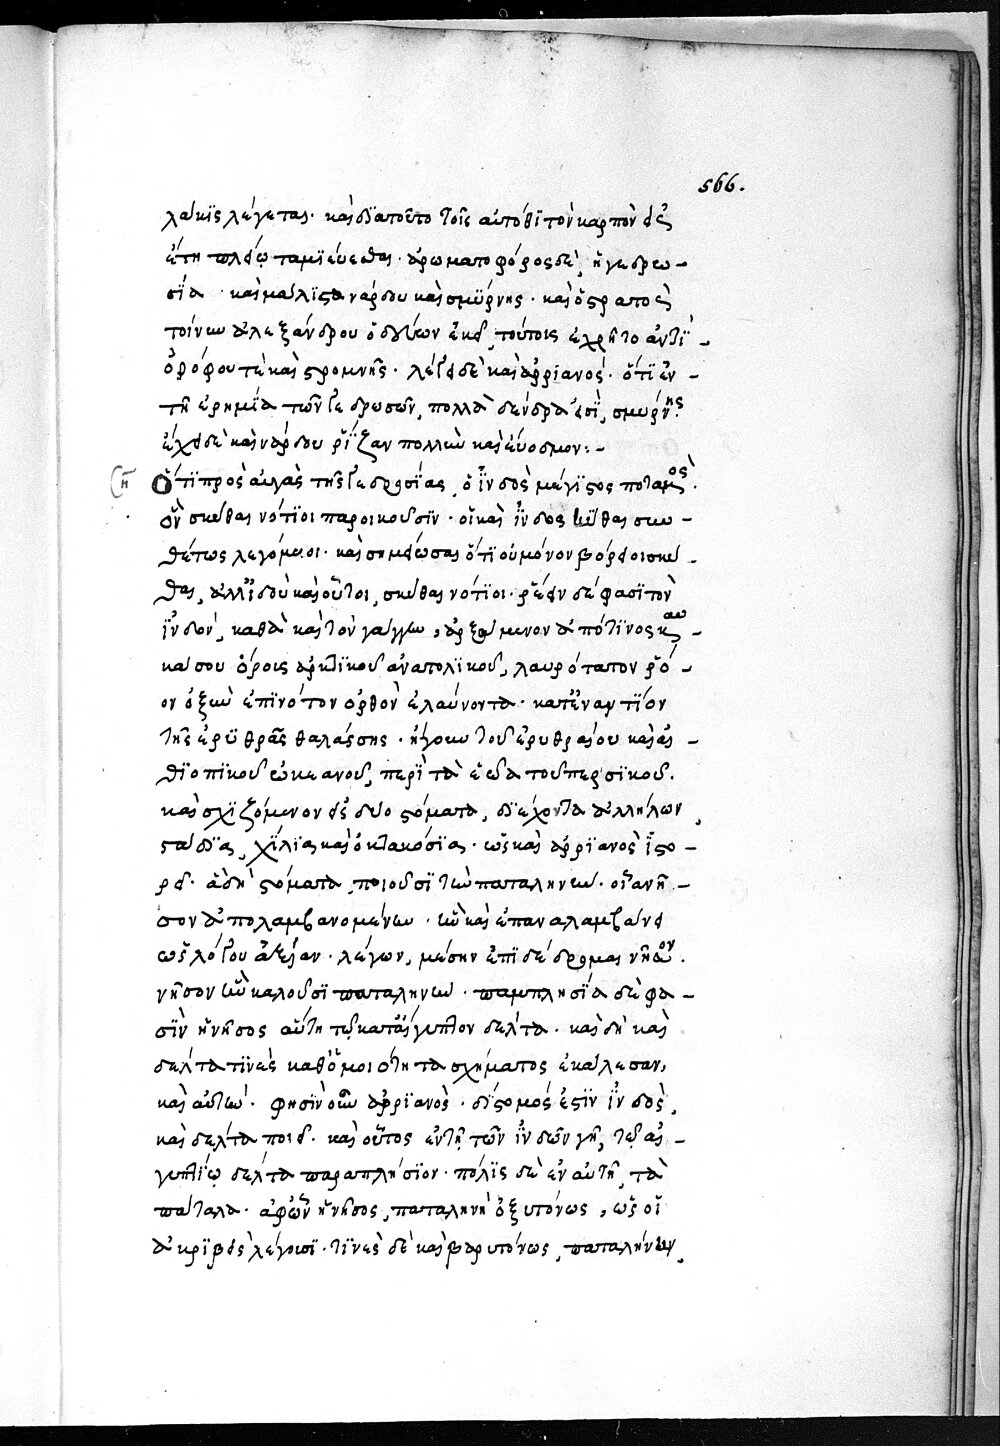 566.
λάκις λέγεται. καὶ διατοῦτο τοῖς αὐτόθι τὸν καρπὸν εἰς
ἔτη πλείω ταμιεύεσθαι. ἀρωματοφόρος δὲ, ἡ γεδρω-
σία. καὶ μάλιστα νάρδου καὶ σμύρνης. καὶ ὁ στρατὸς
τοίνυν ἀλεξάνδρου ὁδεύων ἐκεῖ, τούτοις ἐχρῆτο ἀντὶ
ὀρόφου τὲ καὶ στρωμνῆς. λέγει δὲ καὶ ἀρριανός. ὅτι ἐν
τῆ ἐρημία τῶν γεδρωσῶν, πολλὰ δένδρα εἰσί, σμύρνης.
ἔχει δὲ καὶ νάρδου ῥίζαν πολλὴν καὶ εὔοσμον:-
Ὅτι πρὸς αὐγὰς τῆς γεδρωσίας, ὁ ἰνδὸς μέγιστος ποταμός.
ὃν σκύθαι νότιοι παροικοῦσιν. οἱ καὶ ἰνδοσκύθαι συν-
θέτως λεγόμενοι. καὶ σημείωσαι ὅτι οὐ μόνον βόρειοι σκύ-
θαι, ἀλλ' ἰδοὺ καὶ οὗτοι, σκύθαι νότιοι. ῥέειν δέ φασι τὸν
ἰνδόν, καθὰ καὶ τὸν γάγγην, ἀρξάμενον ἀπό τινος καυ-
κάσου ὄρους ἀρκτικοῦ ἀνατολικοῦ, λαυρότατον ῥό-
ον ὀξὺν ἐπὶ νότον ὀρθὸν ἐλαύνοντα. κατέναντίον
τῆς ἐρυθρᾶς θαλάσσης. ἤγουν τοῦ ἐρυθραίου καὶ αἰ-
θιοπικοῦ ὠκεανοῦ, περὶ τὰ ἔξω τοῦ περσικοῦ.
καὶ σχιζόμενον εἰς δύο στόματα, διέχοντα ἀλλήλων
στάδια, χίλια καὶ ὀκτακόσια. ὡς καὶ ἀρριανὸς ἱστο-
ρεῖ. ἃ δὴ στόματα, ποιοῦσι τὴν παταληνὴν. οἷα νῆ-
σον ἀπολαμβανομένην. ἣν καὶ ἐπαναλαμβάνει
ὡς λόγου ἀξίαν. λέγων, μέσην ἐπιδέδρομαι νῆσον.
νῆσον ἣν καλοῦσι παταληνὴν. παμπλησία δὲ φα-
σὶν ἡ νῆσος αὕτη τῶ κατ' αἴγυπτον δέλτα. καὶ δὴ καὶ
δέλτα τινὲς καθ' ὁμοιότητα σχήματος ἐκάλεσαν,
καὶ αὐτήν. φησὶν οὖν ἀρριανὸς. δίστομός ἐστιν ἰνδὸς,
καὶ δέλτα ποιεῖ. καὶ οὗτος ἐν τῆ τῶν ἰνδῶν γῆ, τῶ αἰ-
γυπτίω δέλτα παραπλήσιον. πόλις δὲ ἐν αὐτῆ, τὰ
πάταλα. ἀφ' ὧν ἡ νῆσος, παταληνὴ ὀξυτόνως, ὡς οἱ
ἀκριβεῖς λέγουσι. τινὲς δὲ καὶ βαρυτόνως, παταλήνην,